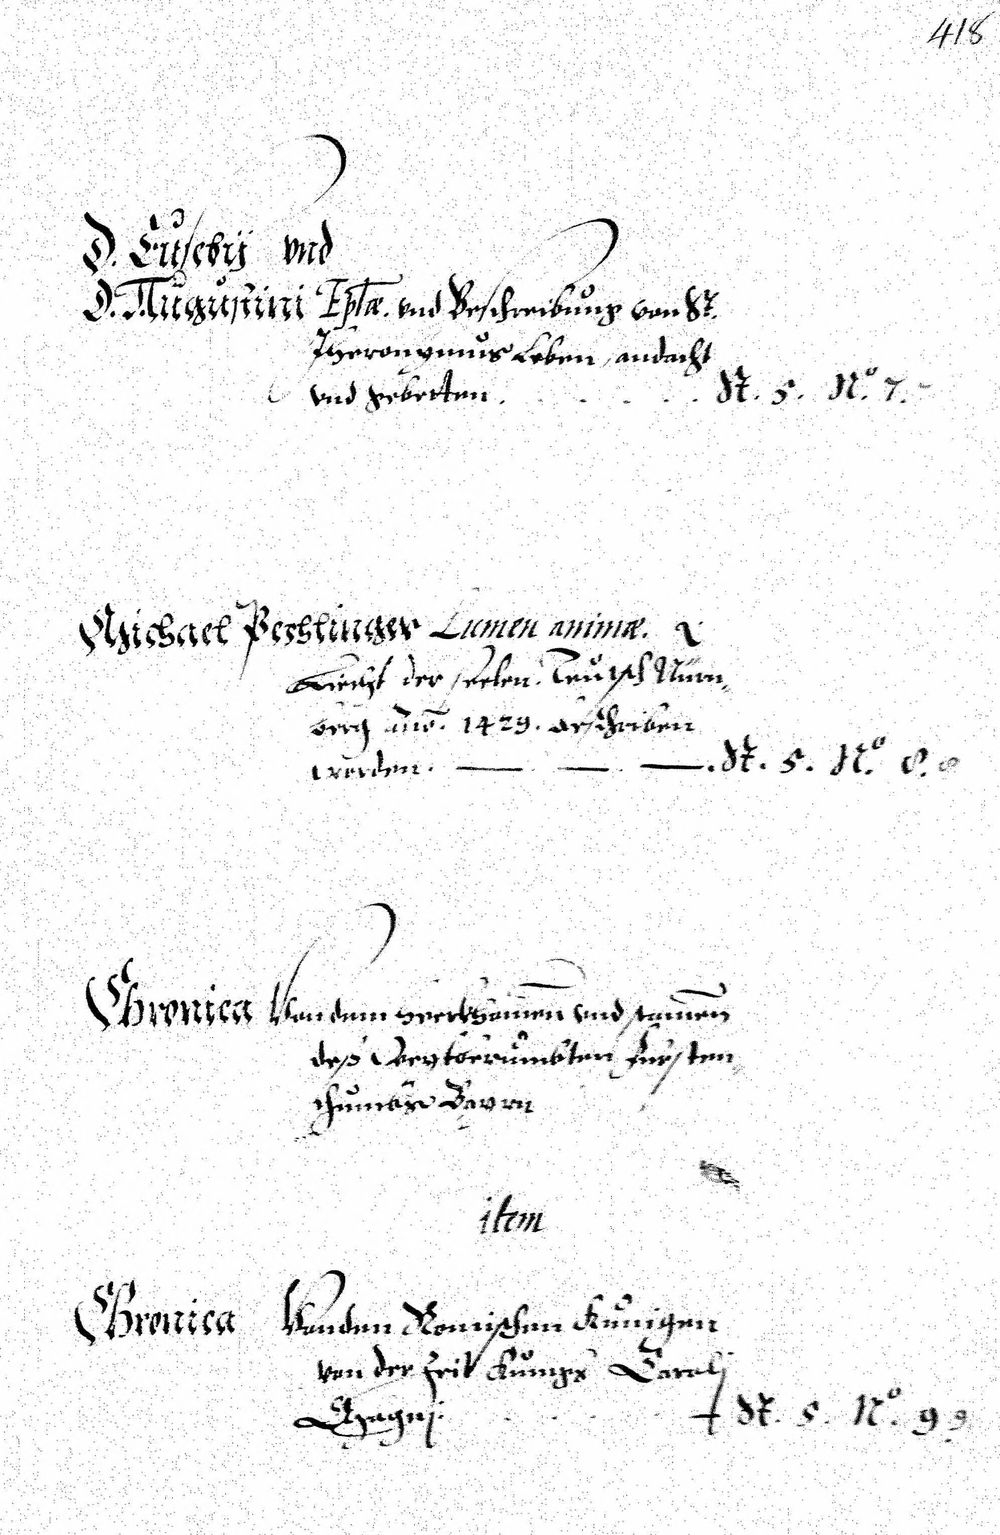 418
D. Eusebij vnd
D. Augustini Eplæ. vnd Beschreibung von St.
Hieronymus Leben, andacht
vnd gebetten. St. 5. Nº. 7.
Michael Pechlinger Lumen animæ.
Liecht der seelen. Teutsch Nürn-
berg año. 1429. geschriben
worden. St. 5. Nº. 8.
Chronica Von dem herkhom̄en vnd stam̄en
deß Fürsten-
thumbs Bayrn
item
Chronica Von den Romischen Künigen
von der Zeit Künigs Caroli
Magnj. St. 5. Nº. 9